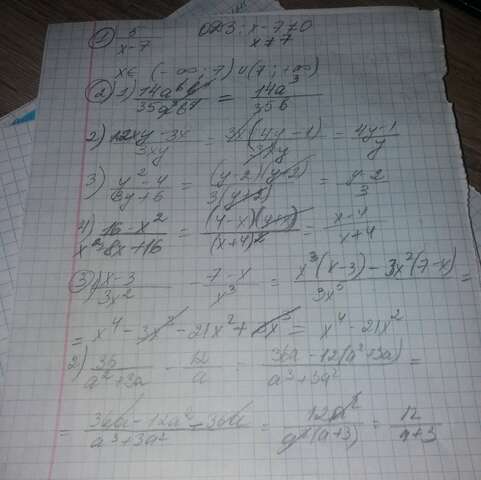 ① 5/(x-7) ОДЗ: x-7≠0
x≠7
x∈(-∞; 7)∪(7; +∞)
② 1) 14a⁶b⁴/35a²b⁷ = 14a/35b³
2) (12xy-3x)/3xy = 3x(4y-1)/3xy = (4y-1)/y
3) (y²-4)/(3y+6) = (y-2)(y+2)/3(y+2) = (y-2)/3
4) (16-x²)/(x²+8x+16) = (4-x)(x+4)/(x+4)² = (x-4)/(x+4)
③ 1) (x-3)/3x² - (7-x)/x³ = (x³(x-3)-3x²(7-x))/3x⁵ =
= x⁴-3x³-21x²+3x³ = x⁴-21x²
2) 36/(a²+3a) - 12/a = (36a-12(a²+3a))/(a³+3a²) =
= (36a-12a²-36a)/(a³+3a²) = 12a²/a²(a+3) = 12/(a+3)